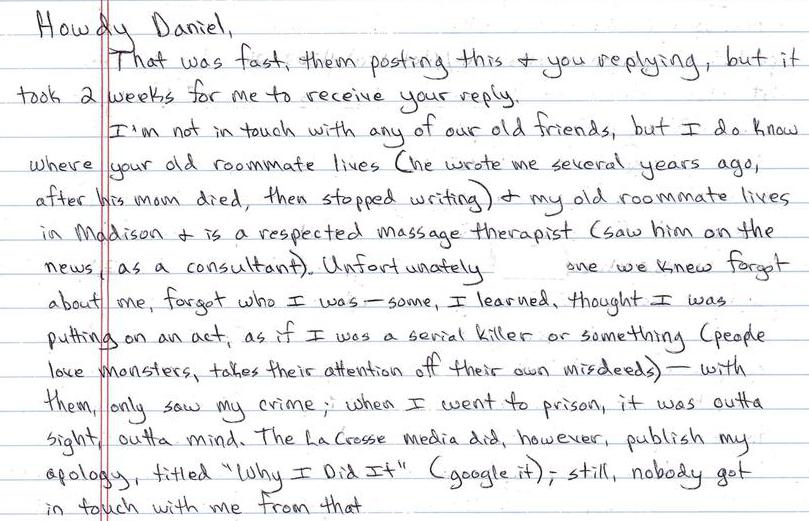 Howdy Daniel,
That was fast, them posting this + you replying, but it
took 2 weeks for me to receive your reply.
I'm not in touch with any of our old friends, but I do know
where your old roommate lives (he wrote me several years ago,
after his mom died, then stopped writing) + my old roommate lives
in Madison + is a respected massage therapist (saw him on the
news, as a consultant). Unfortunately one we knew forgot
about me, forgot who I was — some, I learned, thought I was
putting on an act, as if I was a serial killer or something (people
love monsters, takes their attention off their own misdeeds) — with
them, only saw my crime; when I went to prison, it was outta
sight, outta mind. The La Crosse media did, however, publish my
apology, titled "Why I Did It" (google it); still, nobody got
in touch with me from that